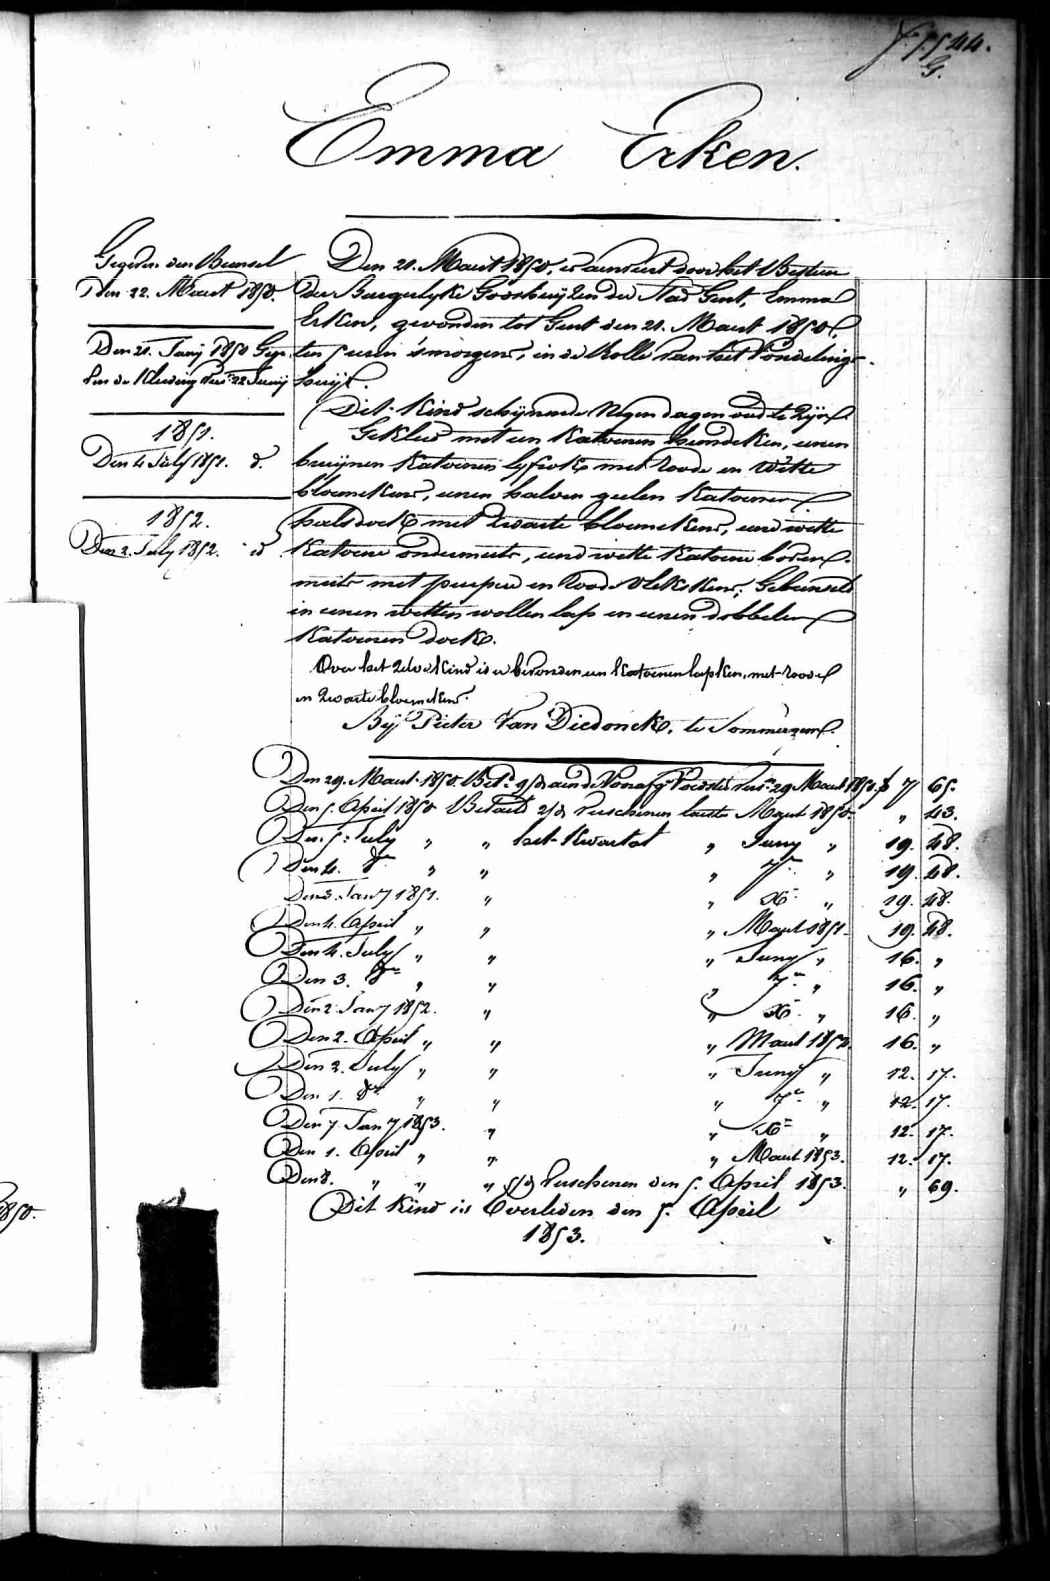 44.
G.
Emma Erken.
Gegeven den Bunsel
den 22. Maert 1850.
Den 21. Juny 1850 Gege-
ven de Kleeding Vers. 22 Juny
1851.
Den 4 July 1851. d.
1852.
Den 2. July 1852. id
Den 21. Maert 1850, is aenveird door het Bestier
der Burgerlyke Godshuijzen der Stad Gent, Emma
Erken, gevonden tot Gent den 21. Maert 1850,
ten 5 uren 's morgens, in de Rolle van het Vondelings-
huijs.
Dit Kind schijnende Negen dagen oud te zijn
Gekleed met een Katoenen hemdeken, eenen
bruijnen Katoenen lyfrok met roode en Witte
bloemekens, eenen halven geelen Katoenen
halsdoek met zwarte bloemekens, eene witte
Katoene ondermuts, eene witte Katoene boven-
muts met purpere en roode Vlekskens, Gebunseld
in eenen witten wollen lap en eenen dobbelen
Katoenen doek.
Over het zelve Kind is er bevonden een Katoenen lapken, met roode
en zwarte bloemekens.
Bij Pieter Van Diedonck, te Sommergem.
Den 29. Maert 1850. Bet. 9/d aen de Voorafg. Voedster vers. 29 Maert 1850. f 7 65.
Den 5. April 1850 Betaeld 2/d Verschenen laetste Maert 1850. " 43.
Den 5. July " " het Kwartal " Juny " 19. 48.
Den 4. 8.re " " " 7.re " 19. 48.
Den 3. Jany 1851. " " X.re " 19. 48.
Den 4. April " " " Maert 1851. 19. 48.
Den 4. July " " " Juny " 16. "
Den 3. 8.re " " " 7.re " 16. "
Den 2. Jany 1852. " " X.re " 16. "
Den 2. April " " " Maert 1852. 16. "
Den 2. July " " " Juny " 12. 17.
Den 1. 8.re " " " 7.re " 12. 17.
Den 7 Jany 1853. " " X.re " 12. 17.
Den 1. April " " " Maert 1853. 12. 17.
Den 8. " " " 5/d Verschenen den 5. April 1853. " 69.
Dit Kind is Overleden den 5. April
1853.
1850.